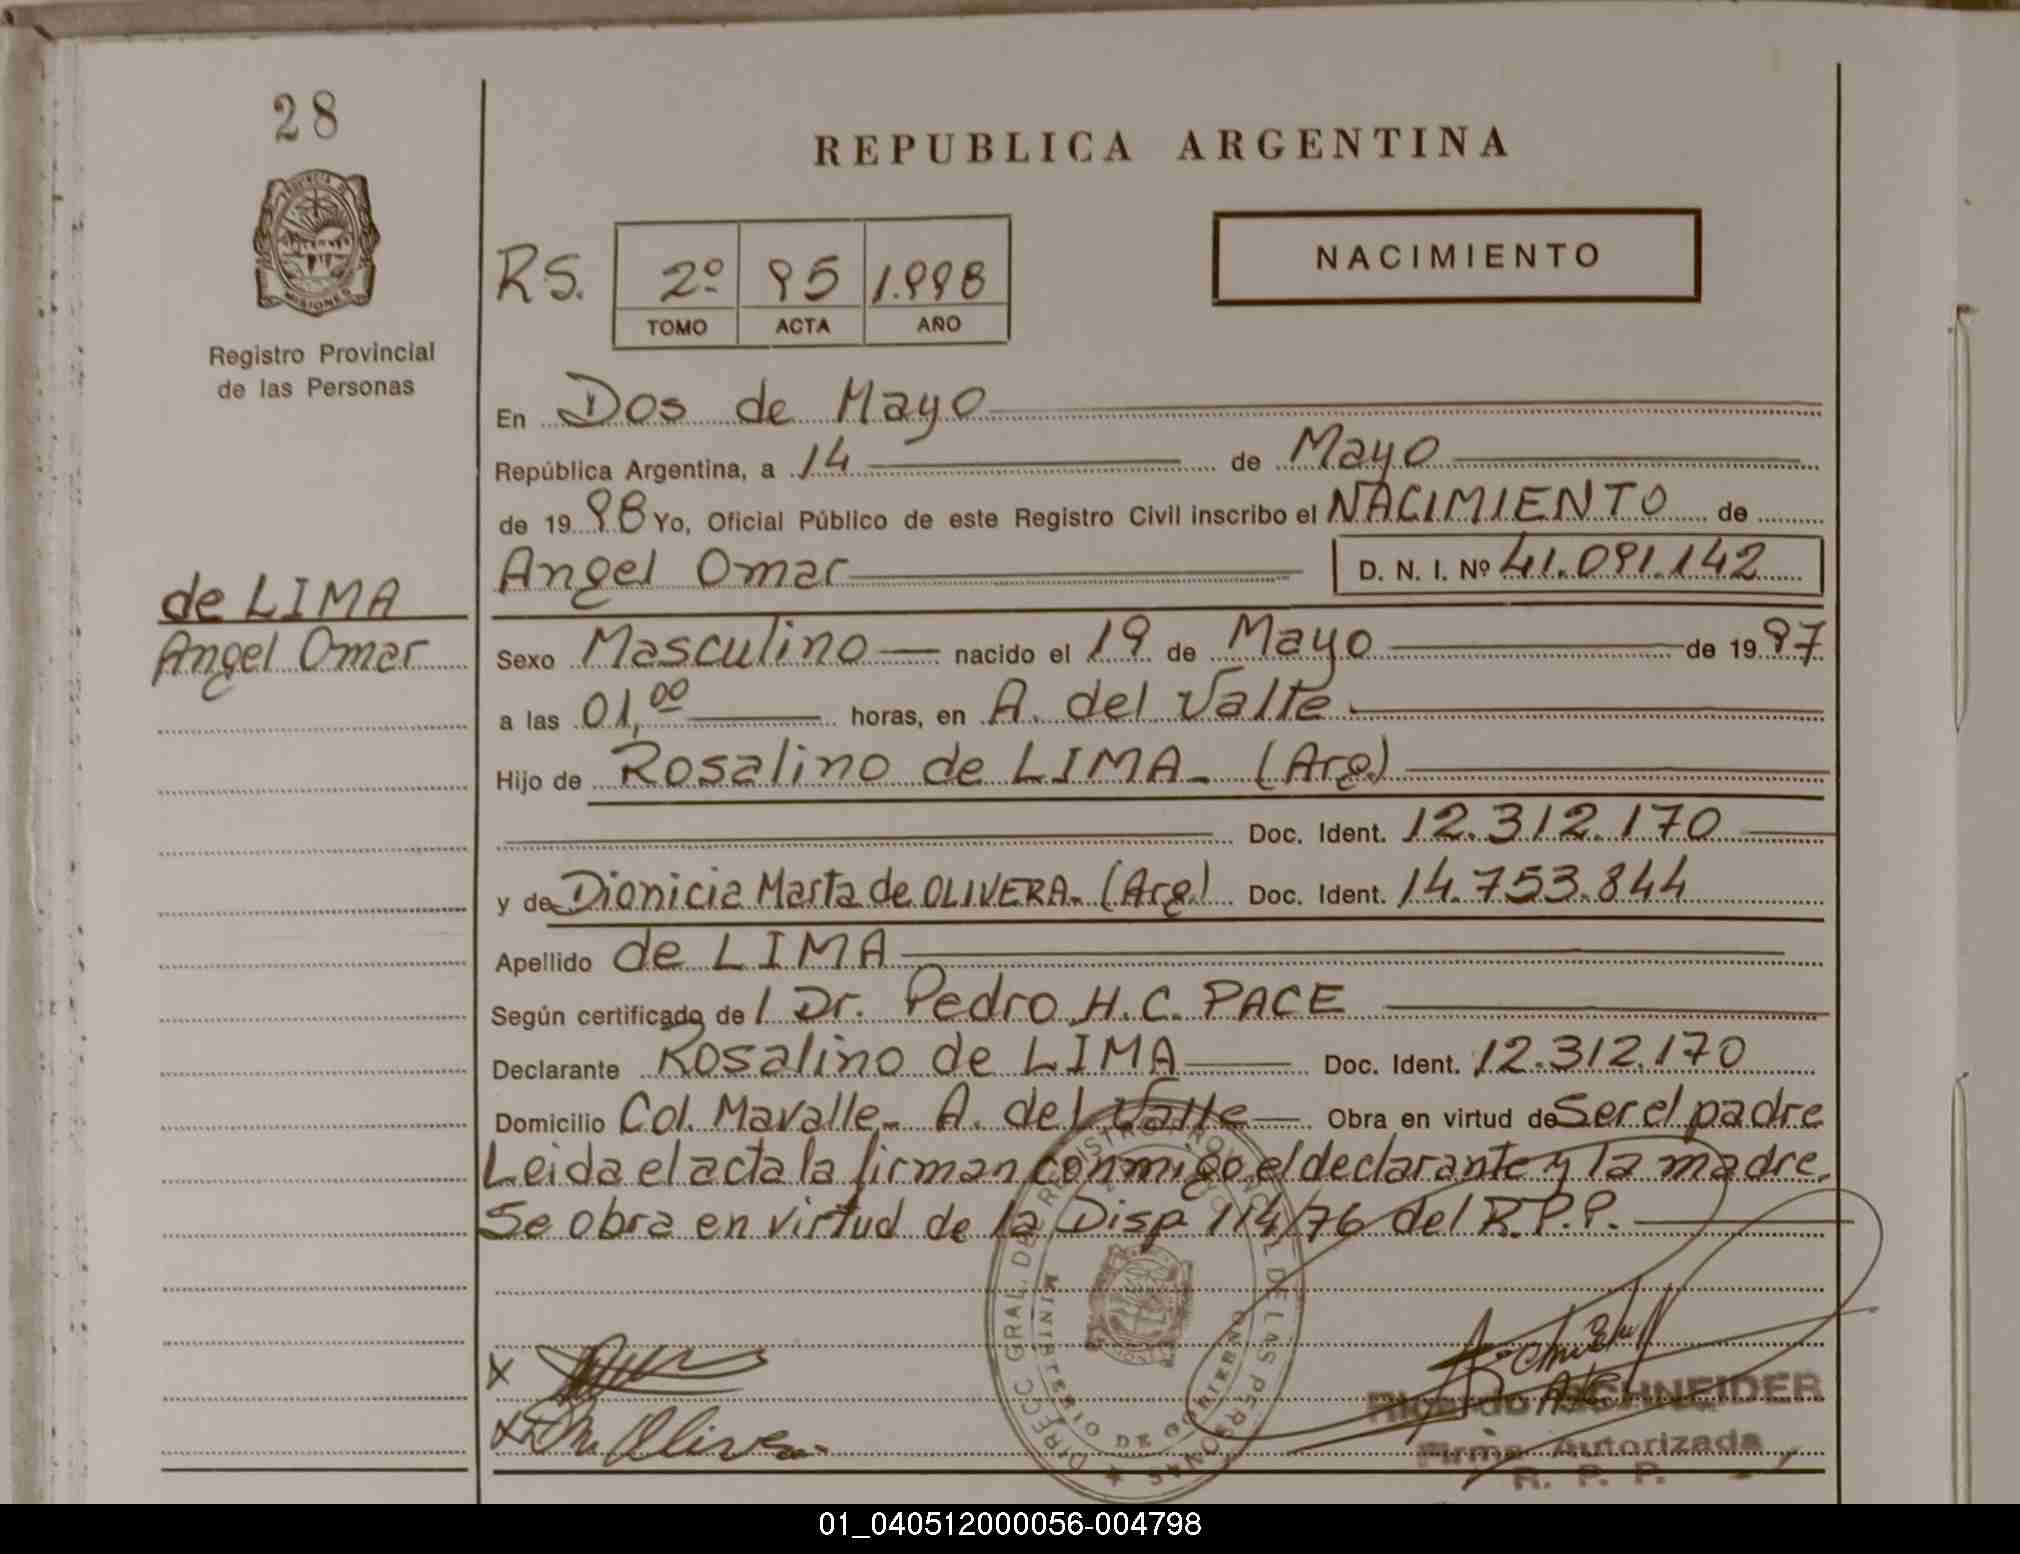 28
REPUBLICA ARGENTINA
PROVINCIA DE
MISIONES
Registro Provincial
de las Personas
NACIMIENTO
RS. 2º 95 1.998
TOMO ACTA AÑO
En Dos de Mayo
República Argentina, a 14 de Mayo
de 19 98 Yo, Oficial Público de este Registro Civil inscribo el NACIMIENTO de
Angel Omar D. N. I. Nº 41.091.142
de LIMA
Angel Omar
Sexo Masculino nacido el 19 de Mayo de 19 97
a las 01,00 horas, en A. del Valle
Hijo de Rosalino de LIMA_ (Arg)
Doc. Ident. 12.312.170
y de Dionicia Marta de OLIVERA_ (Arg) Doc. Ident. 14.753.844
Apellido de LIMA
Según certificado de l Dr. Pedro H.C. PACE
Declarante Rosalino de LIMA Doc. Ident. 12.312.170
Domicilio Col. Mavalle_ A. del Valle Obra en virtud de Ser el padre
Leida el acta la firman conmigo el declarante y la madre.
Se obra en virtud de la Disp 114/76 del R.P.P.
DIRECC GRAL. DEL REGISTRO PROVINCIAL DE LAS PERSONAS
MINISTERIO DE GOBIERNO
X
X D M. Olivera
Ricardo SCHNEIDER
Firma Autorizada
R. P. P.
01_040512000056-004798